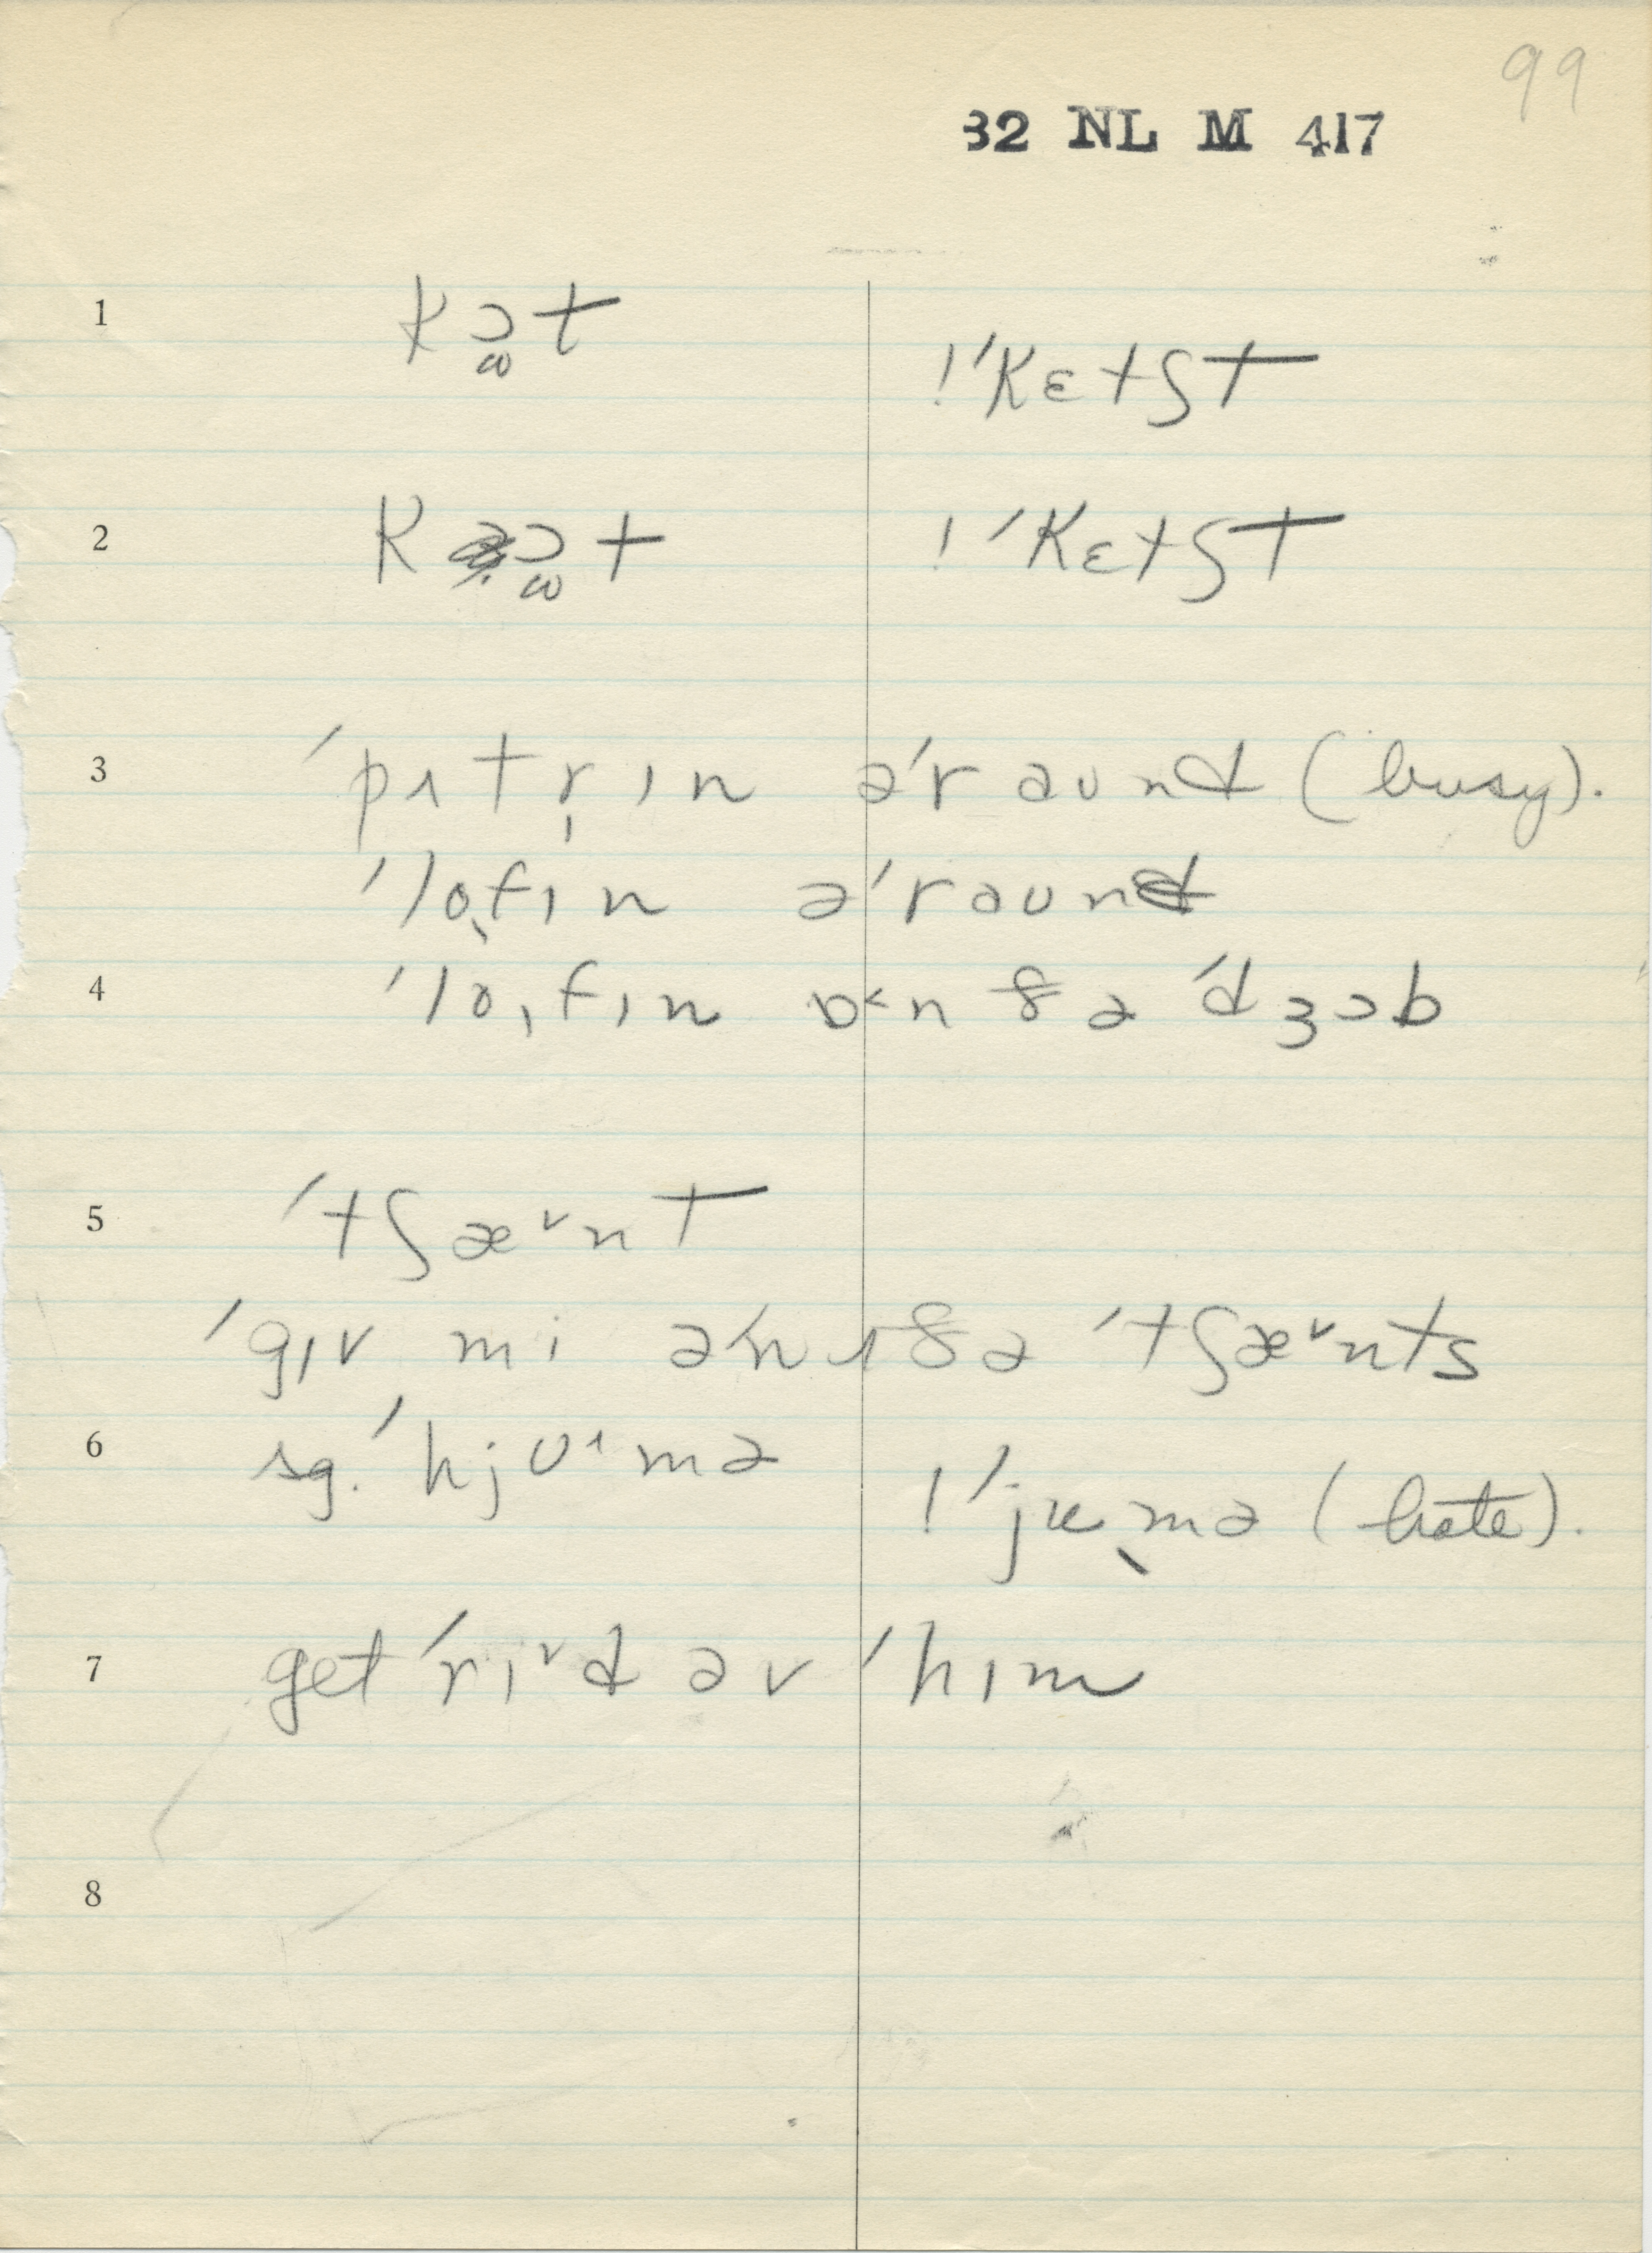 99
32 NL M 417
1 kɔ̫t
!ˈkɛtʃt
2 kɔ̫t !ˈkɛtʃt
3 ˈpʌtr̩ɪn əˈraund (busy).
ˈlo̖fɪn əˈraund
4 ˈlo̗fɪn ɒ˂n ðə ˈdʒɔb
5 ˈtʃæ˅nt
ˈgɪv mi əˈnʌðə ˈtʃæ˅nts
6 sg. ˈhjʊ˔mə
!ˈjʉ̖mə (hate).
7 get ˈrɪ˅d əv ˈhɪm
8